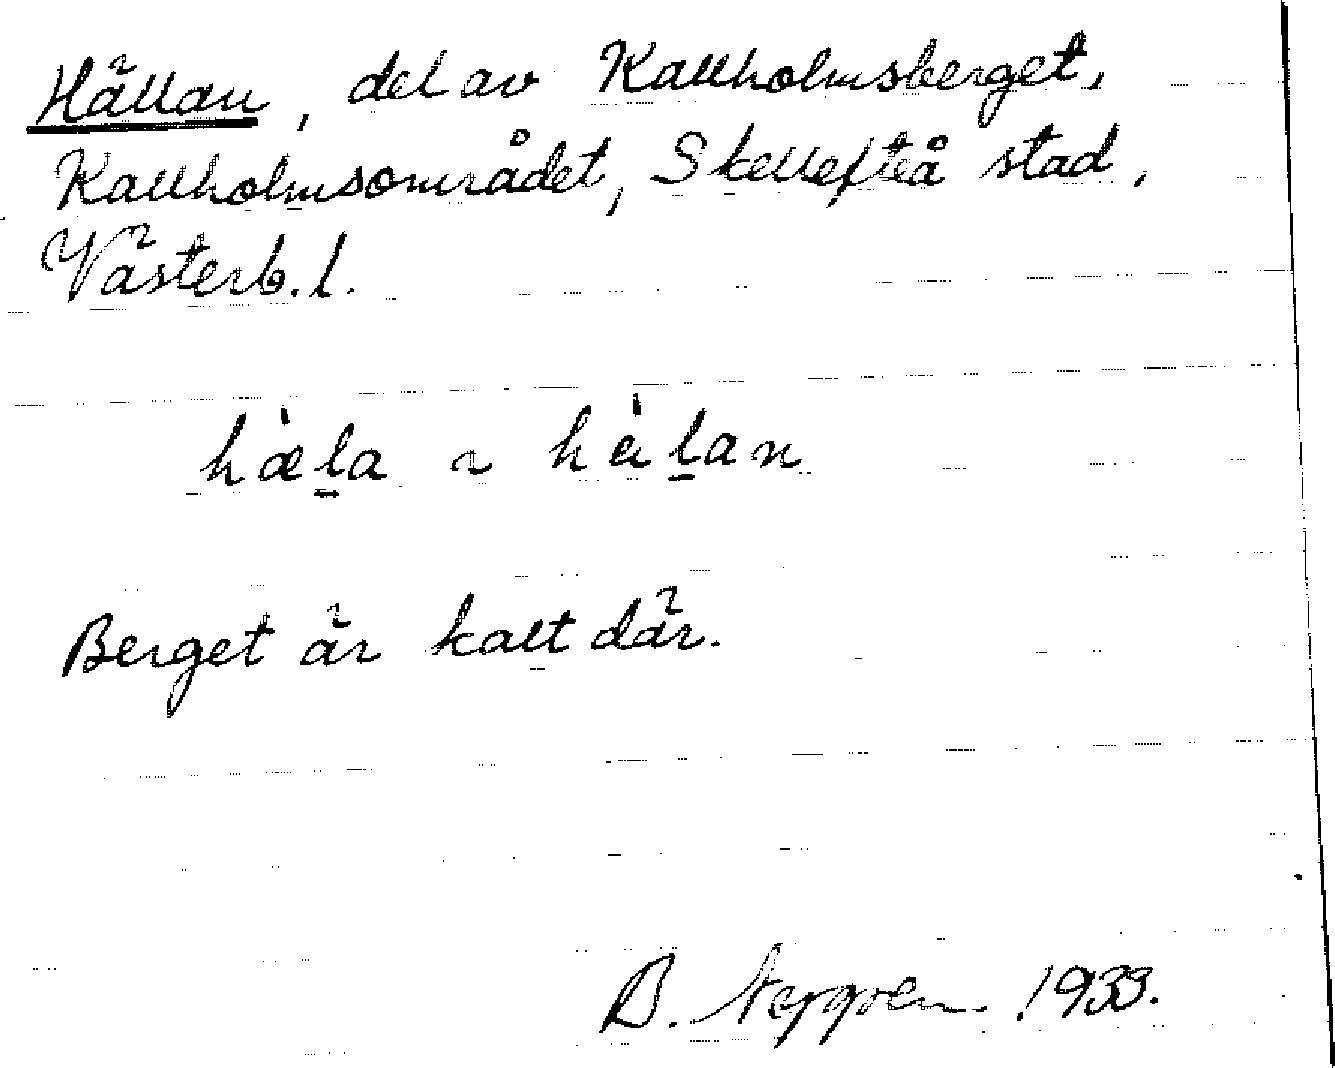 Hällan, del av Kallholmsberget,
Kallholmsområdet, Skellefteå stad,
Västerb. l.
hæ̀l̠a ~ hàl̠an
Berget är kalt där.
B. 1933.